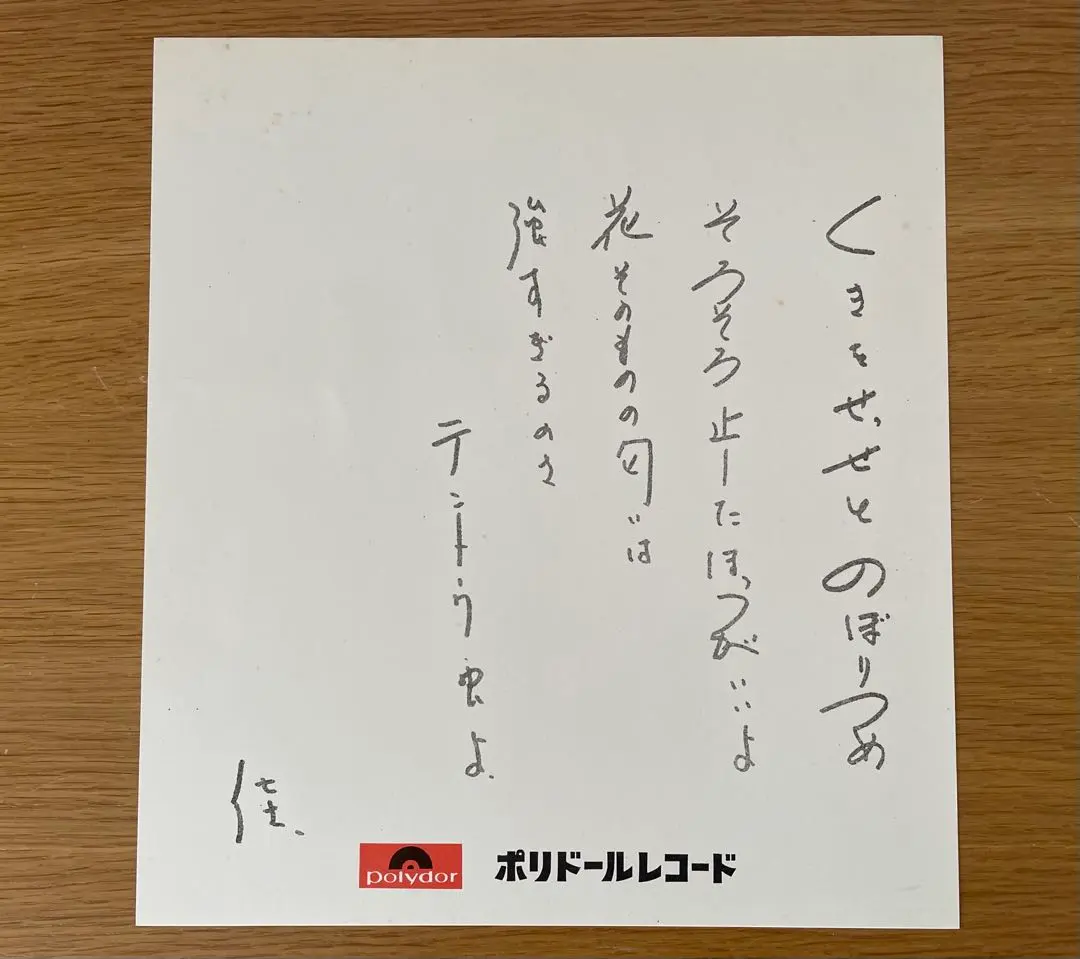 くきをせっせとのぼりつめ
そろそろ止したほうがいいよ
花そのものの匂いは
強すぎるのさ
テントウ虫よ
佳、
polydor
ポリドールレコード